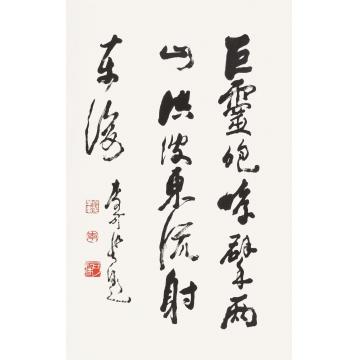 巨靈咆哮擘兩
山洪波東流射
東海